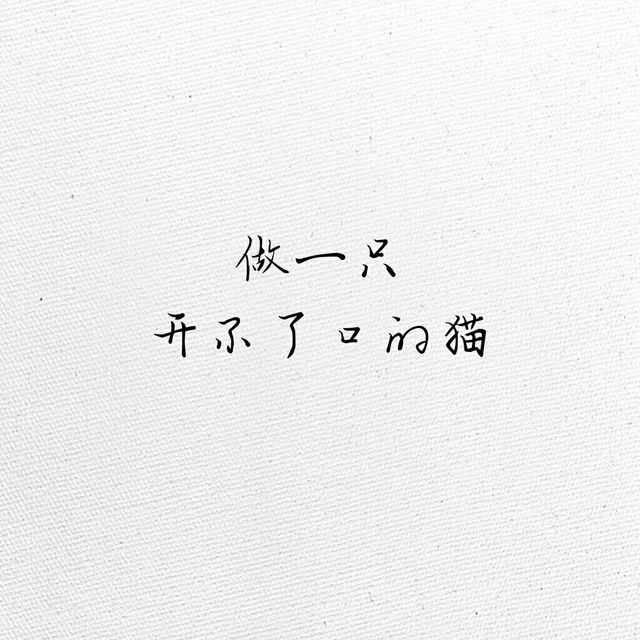 做一只
开不了口的猫